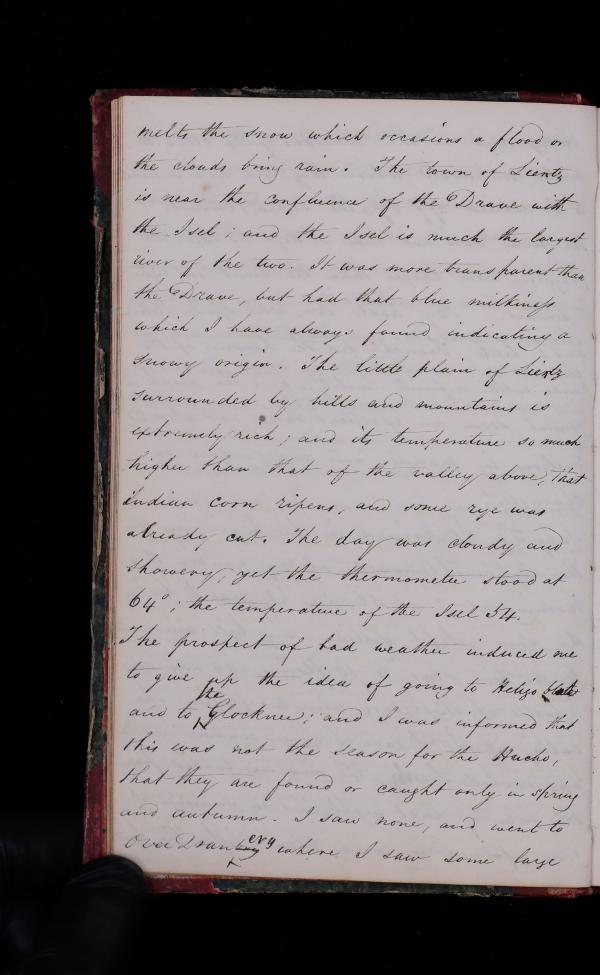 melts the snow which occasions a flood or
the clouds bring rain. The town of Lientz
is near the confluence of the Drave with
the Isel; and the Isel is much the largest
river of the two. It was more transparent than
the Drave, but had that blue milkiness
which I have always found indicating a
snowy origin. The little plain of Lientz
surrounded by hills and mountains is
extremely rich; and its temperature so much
higher than that of the valley above, that
indian corn ripens, and some rye was
already cut. The day was cloudy and
showery, yet the thermometer stood at
64°; the temperature of the Isel 54.
The prospect of bad weather induced me
to give up the idea of going to Heligo
and to the Glockner; and I was informed that
this was not the season for the Hucho,
that they are found or caught only in spring
and autumn. I saw none, and went to
where I saw some large